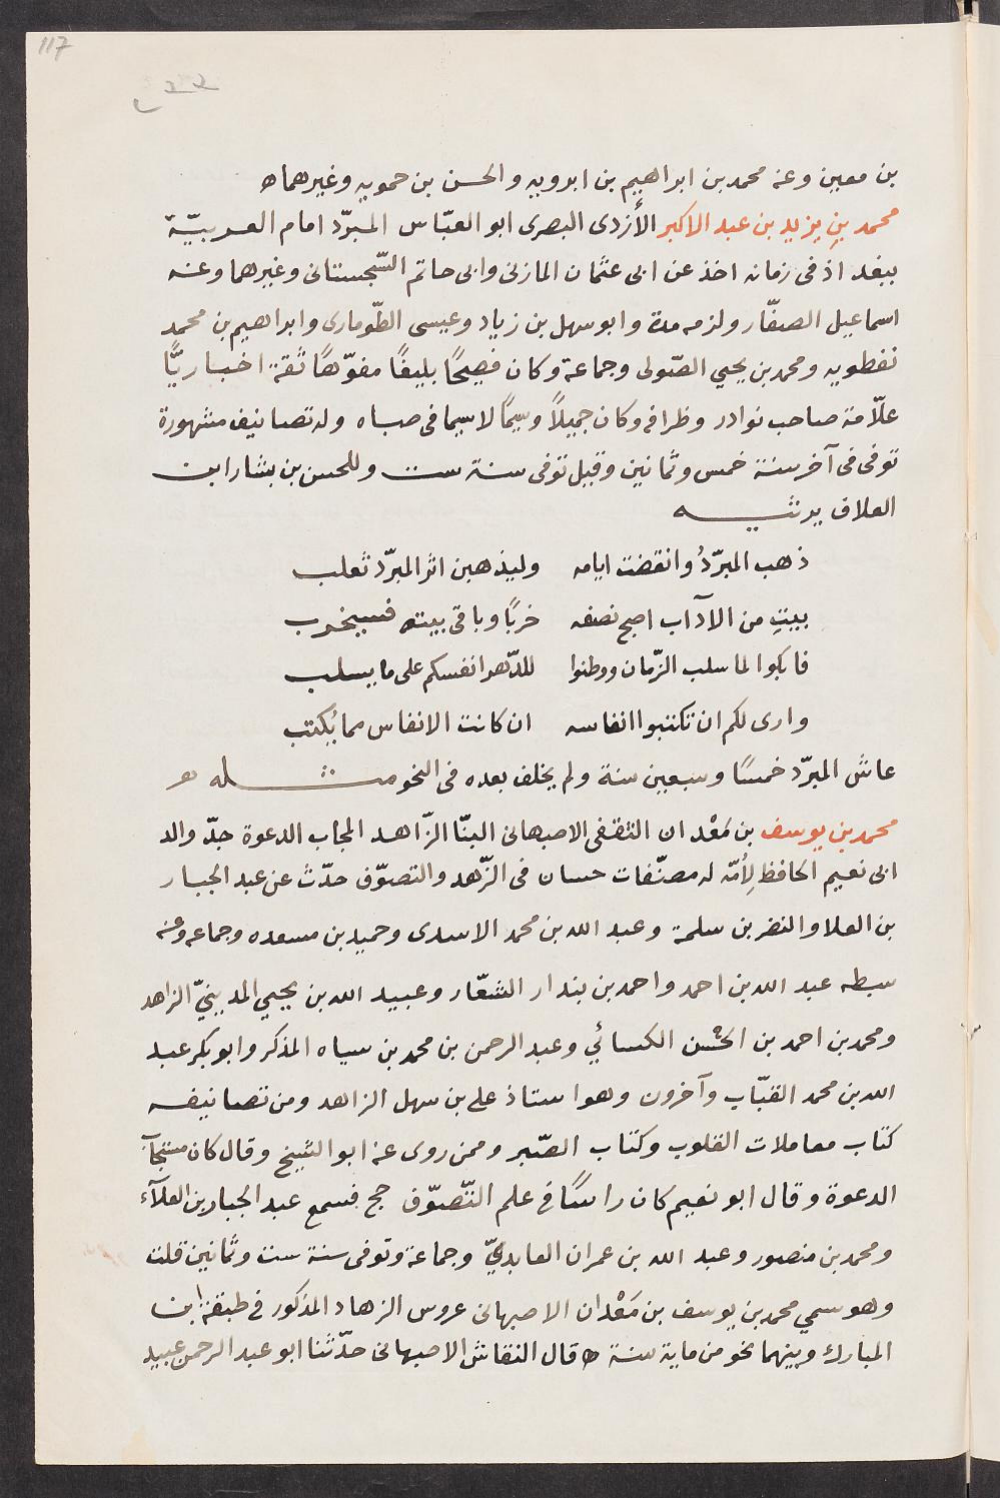 117
٢٢
بن معين وعنه محمد بن ابراهيم بن ابرويه والحسن بن حمويه وغيرهما ه
محمد بن يزيد بن عبد الاكبر الأزدى البصرى ابو العبّاس المبرّد امام العربيّة
ببغداذ فى زمانه اخذ عن ابى عثمان المازنى وابى حاتم السّجستانى وغيرهما وعنه
اسماعيل الصفّار ولزمه مدة وابو سهل بن زياد وعيسى الطّومارى وابراهيم بن محمد
نفطويه ومحمد بن يحيي الصّولى وجماعة وكان فصيحًا بليغًا مفوّهًا ثقة اخباريًّا
علّامة صاحب نوادر وظرافه وكان جميلاً وسيمًا لاسيما فى صباه وله تصانيف مشهورة
توفى فى آخر سنة خمس وثمانين وقيل توفى سنة ست وللحسن بن بشار ابن
العلاف يرثيه
ذهب المبرّدُ وانقضت ايامه وليذهبن اثر المبرّد ثعلب
بيتٍ من الآداب اصبح نصفه خربًا وباقى بيته فسيخرب
فابكوا لما سلب الزّمان ووطنوا للدّهر انفسكم على ما يسلب
وارى لكم ان تكتبوا انفاسه ان كانت الانفاس مما يُكتب
عاش المبرّد خمسًا وسبعين سنة ولم يخلف بعده فى النحو مثله
محمد بن يوسف بن مَعْدان الثقفى الاصبهانى البنّا الزّاهد المجاب الدعوة جدّ والد
ابى نعيم الحافظ لِأُمّه له مصنّفات حسان فى الزّهد والتصوّف حدّث عن عبد الجبار
بن العلا والنضر بن سلمة وعبد الله بن محمد الاسدى وحميد بن مسعده وجماعه وعنه
سبطه عبد الله بن احمد واحمد بن بندار الشعّار وعبيد الله بن يحيي المدينيّ الزاهد
ومحمد بن احمد بن الحسن الكسائي وعبد الرحمن بن محمد بن سياه المذكر وابو بكر عبد
الله بن محمد القبّاب وآخرون وهو استاذ على بن سهل الزاهد ومن تصانيفه
كتاب معاملات القلوب وكتاب الصّبر وممن روى عنه ابو الشيخ وقال كان مستجاب
الدعوة وقال ابو نعيم كان راسًا فى علم التّصوّف حج فسمع عبد الجبار بن العلآء
ومحمد بن منصور وعبد الله بن عمران العابديّ وجماعة وتوفى سنة ست وثمانين قلت
وهو سمي محمد بن يوسف بن مَعْدان الاصبهانى عروس الزهاد المذكور فى طبقة ابن
المبارك وبينهما نحو من ماية سنة ه قال النقاش الاصبهانى حدّثنا ابو عبد الرحمن عبيد